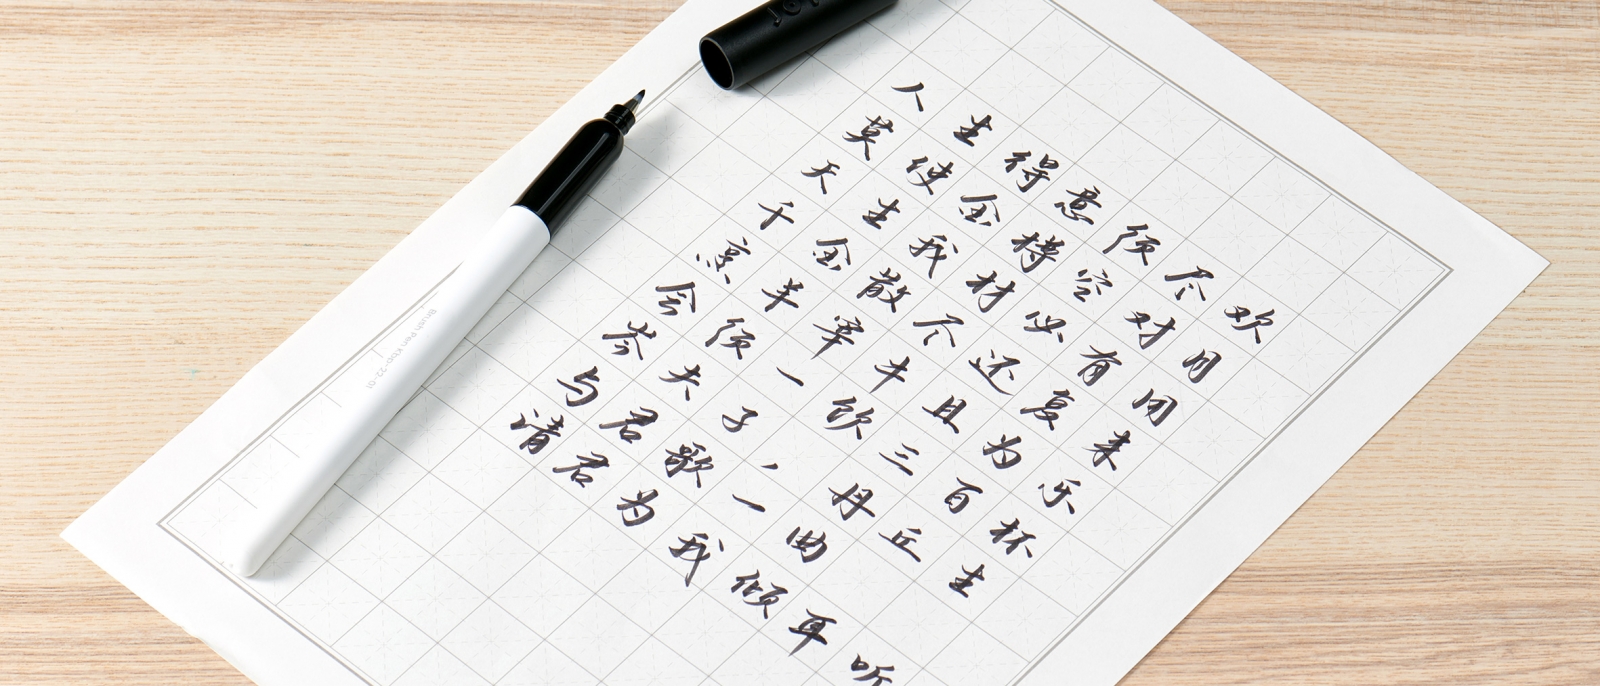 人生得意须尽欢
莫使金樽空对月
天生我材必有用
千金散尽还复来
烹羊宰牛且为乐
会须一饮三百杯
岑夫子，丹丘生
与君歌一曲
请君为我倾耳听
Brush Pen